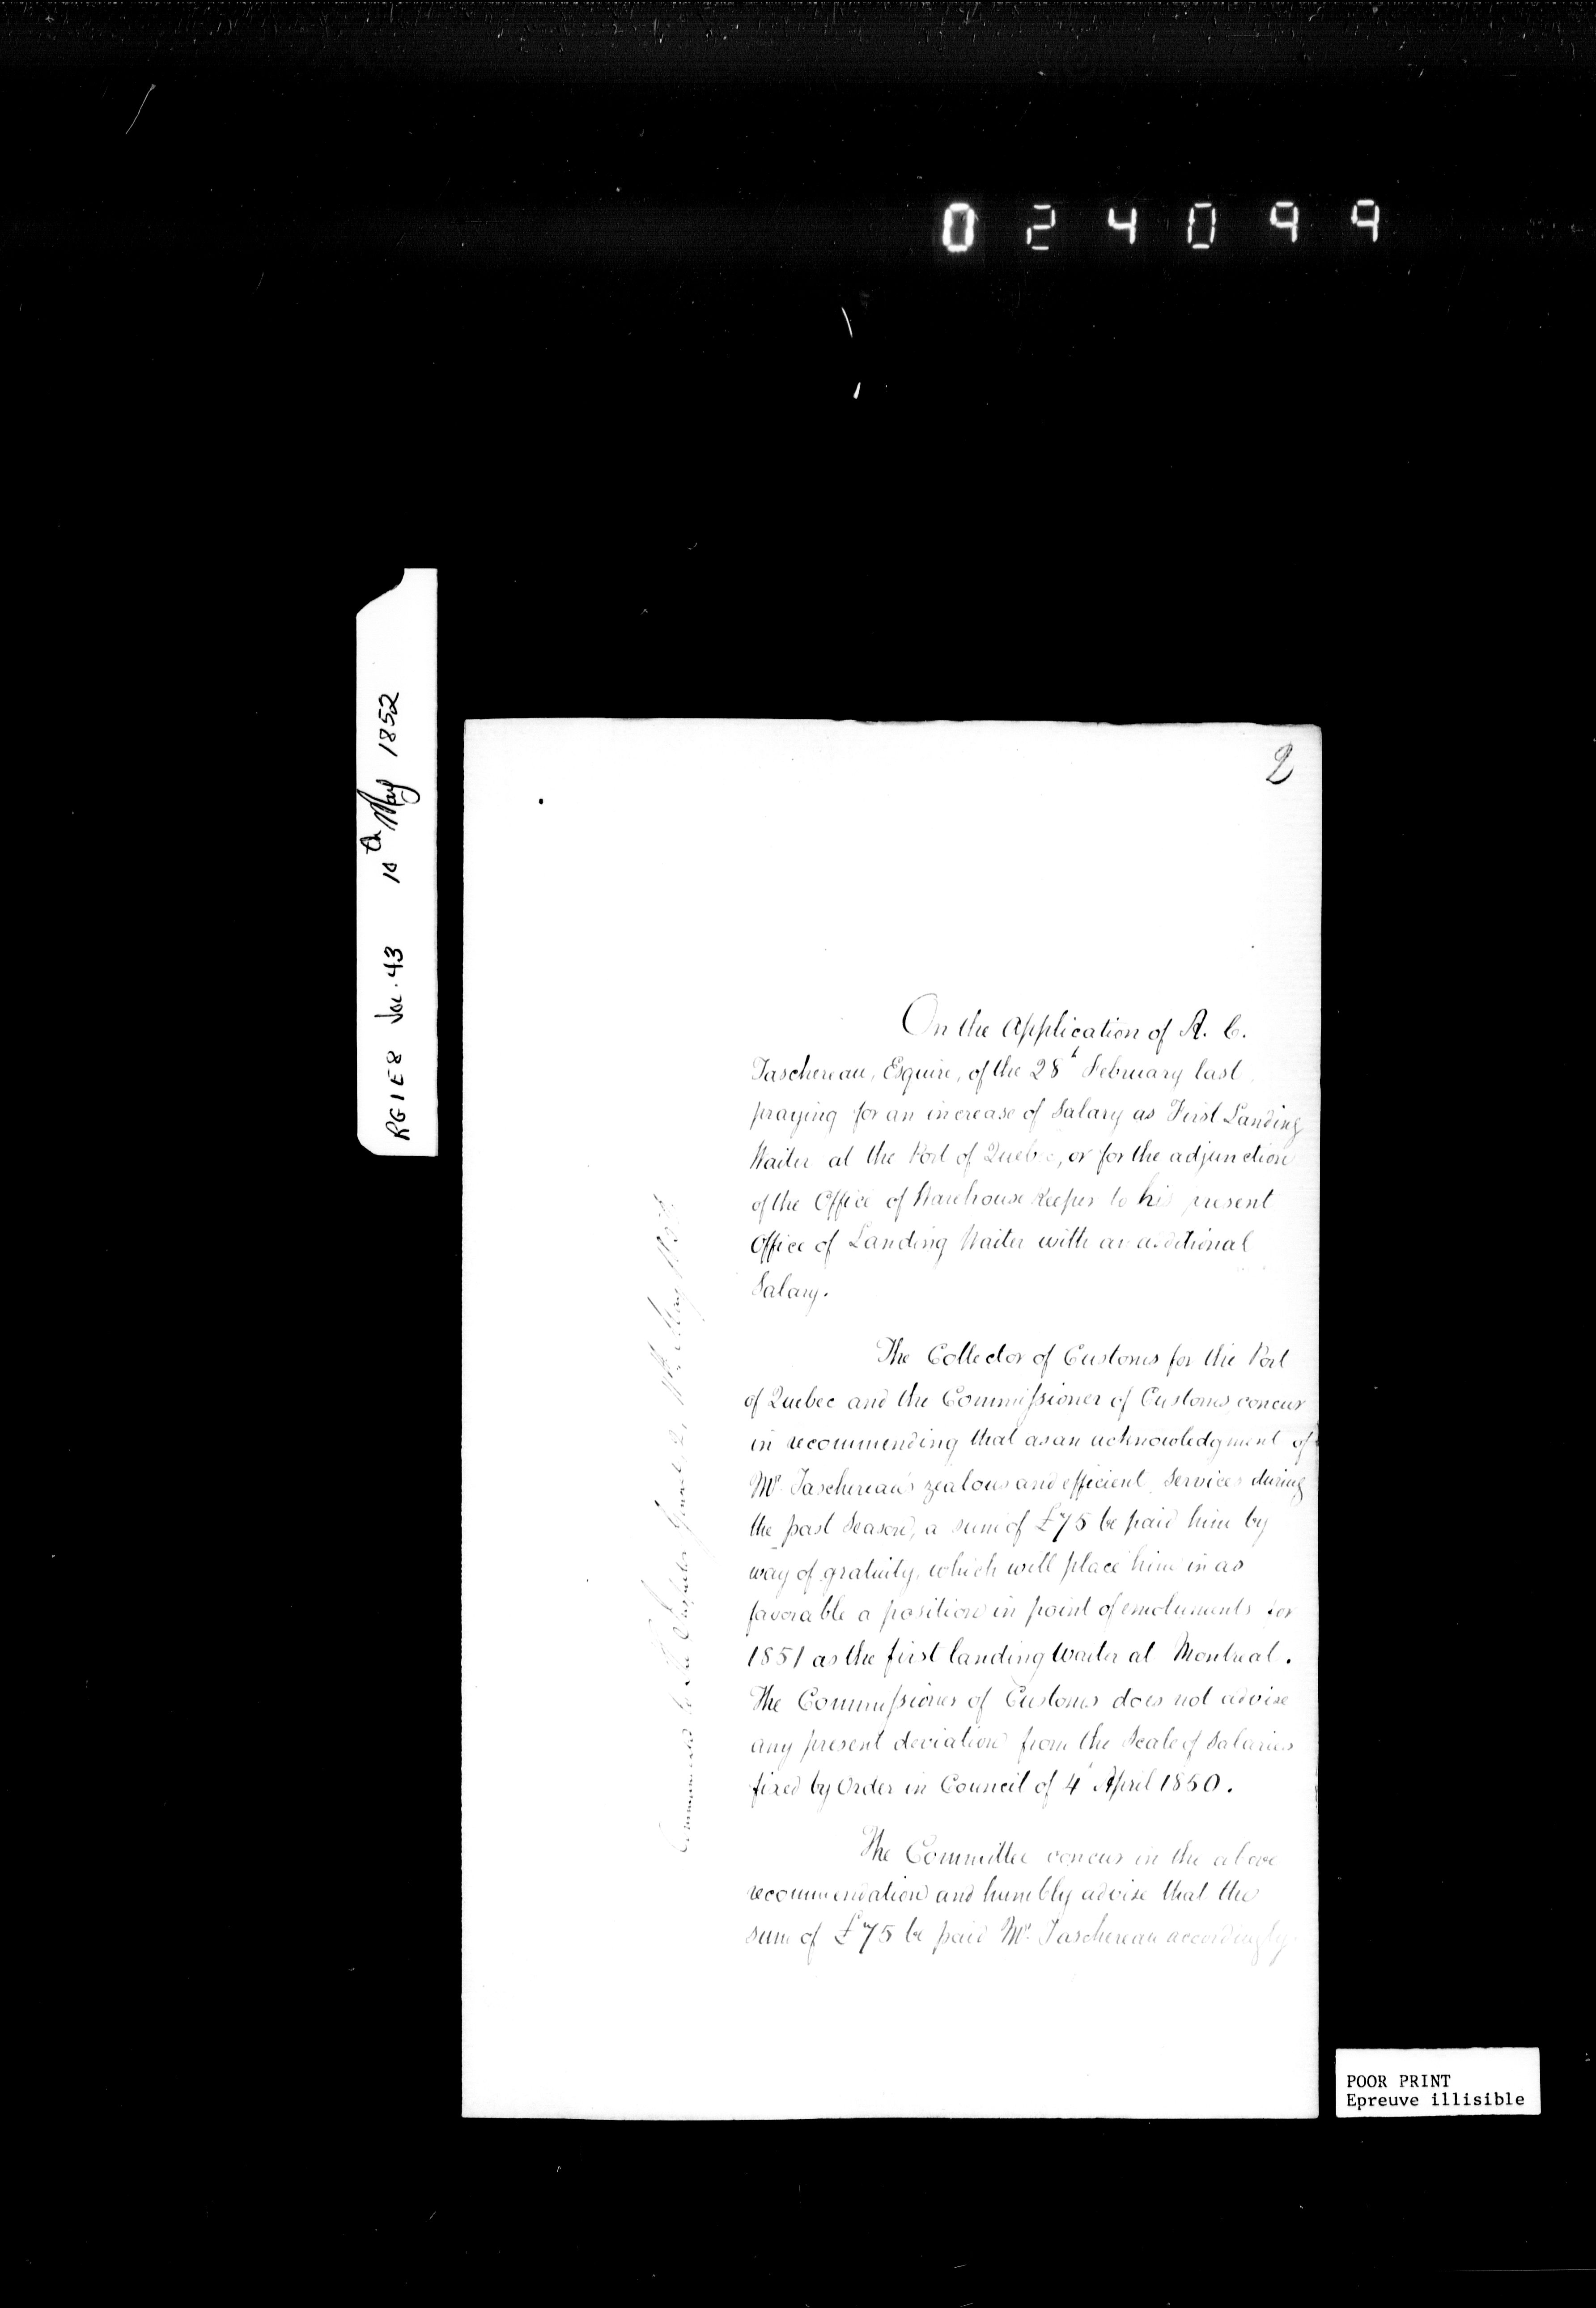 024099
RG1E8 Vol. 43 10th May 1852
2
On the Application of A. C.
Taschereau, Esquire, of the 28t February last,
praying for an increase of Salary as First Landing
Waiter at the Port of Quebec, or for the adjunction
of the Office of Warehouse Keeper to his present
Office of Landing Waiter with an additional
Salary.
The Collector of Customs for the Port
of Quebec and the Commissioner of Customs, concur
in recommending that as an acknowledgment of
Mr. Taschereau's zealous and efficient Services during
the past Season, a sum of £75 be paid him by
way of gratuity, which will place him in as
favorable a position in point of emoluments for
1851 as the first landing Waiter at Montreal.
The Commissioner of Customs does not advise
any present deviation from the Scale of Salaries
fixed by Order in Council of 4t April 1850.
The Committee concur in the above
recommendation and humbly advise that the
sum of £75 be paid Mr. Taschereau accordingly.
to the Inspector General, May
POOR PRINT
Epreuve illisible